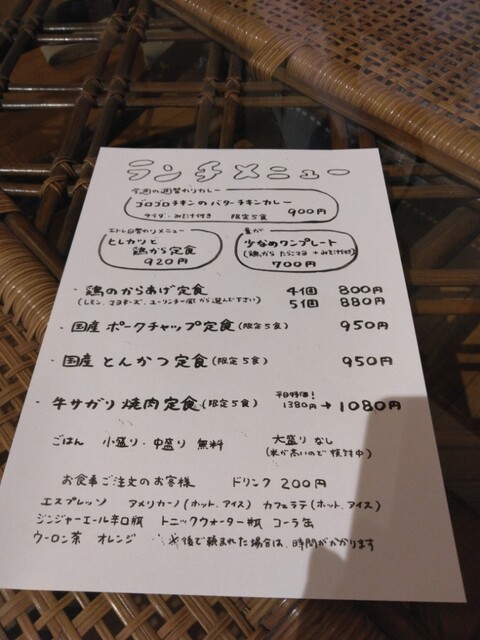 ランチメニュー
今週の週替わりカレー
ゴロゴロチキンのバターチキンカレー
サラダ・みそ汁付き 限定5食 900円
日替わりメニュー
ヒレカツと
鶏から定食
920円
量が
少なめワンプレート
(鶏から たらこマヨ +みそ汁付)
700円
・鶏のからあげ定食 4個 800円
(レモン、マヨネーズ、ユーリンチー風から選んで下さい) 5個 880円
・国産 ポークチャップ定食(限定5食) 950円
・国産 とんかつ定食(限定5食) 950円
・牛サガリ 焼肉定食(限定5食) 平日特価! 1380円→1080円
ごはん 小盛り・中盛り 無料 大盛り なし
(米が高いので検討中)
お食事ご注文のお客様 ドリンク 200円
エスプレッソ アメリカーノ(ホット、アイス) カフェラテ(ホット、アイス)
ジンジャーエール辛口瓶 トニックウォーター瓶 コーラ缶
ウーロン茶 オレンジ ※後で頼まれた場合は、時間がかかります